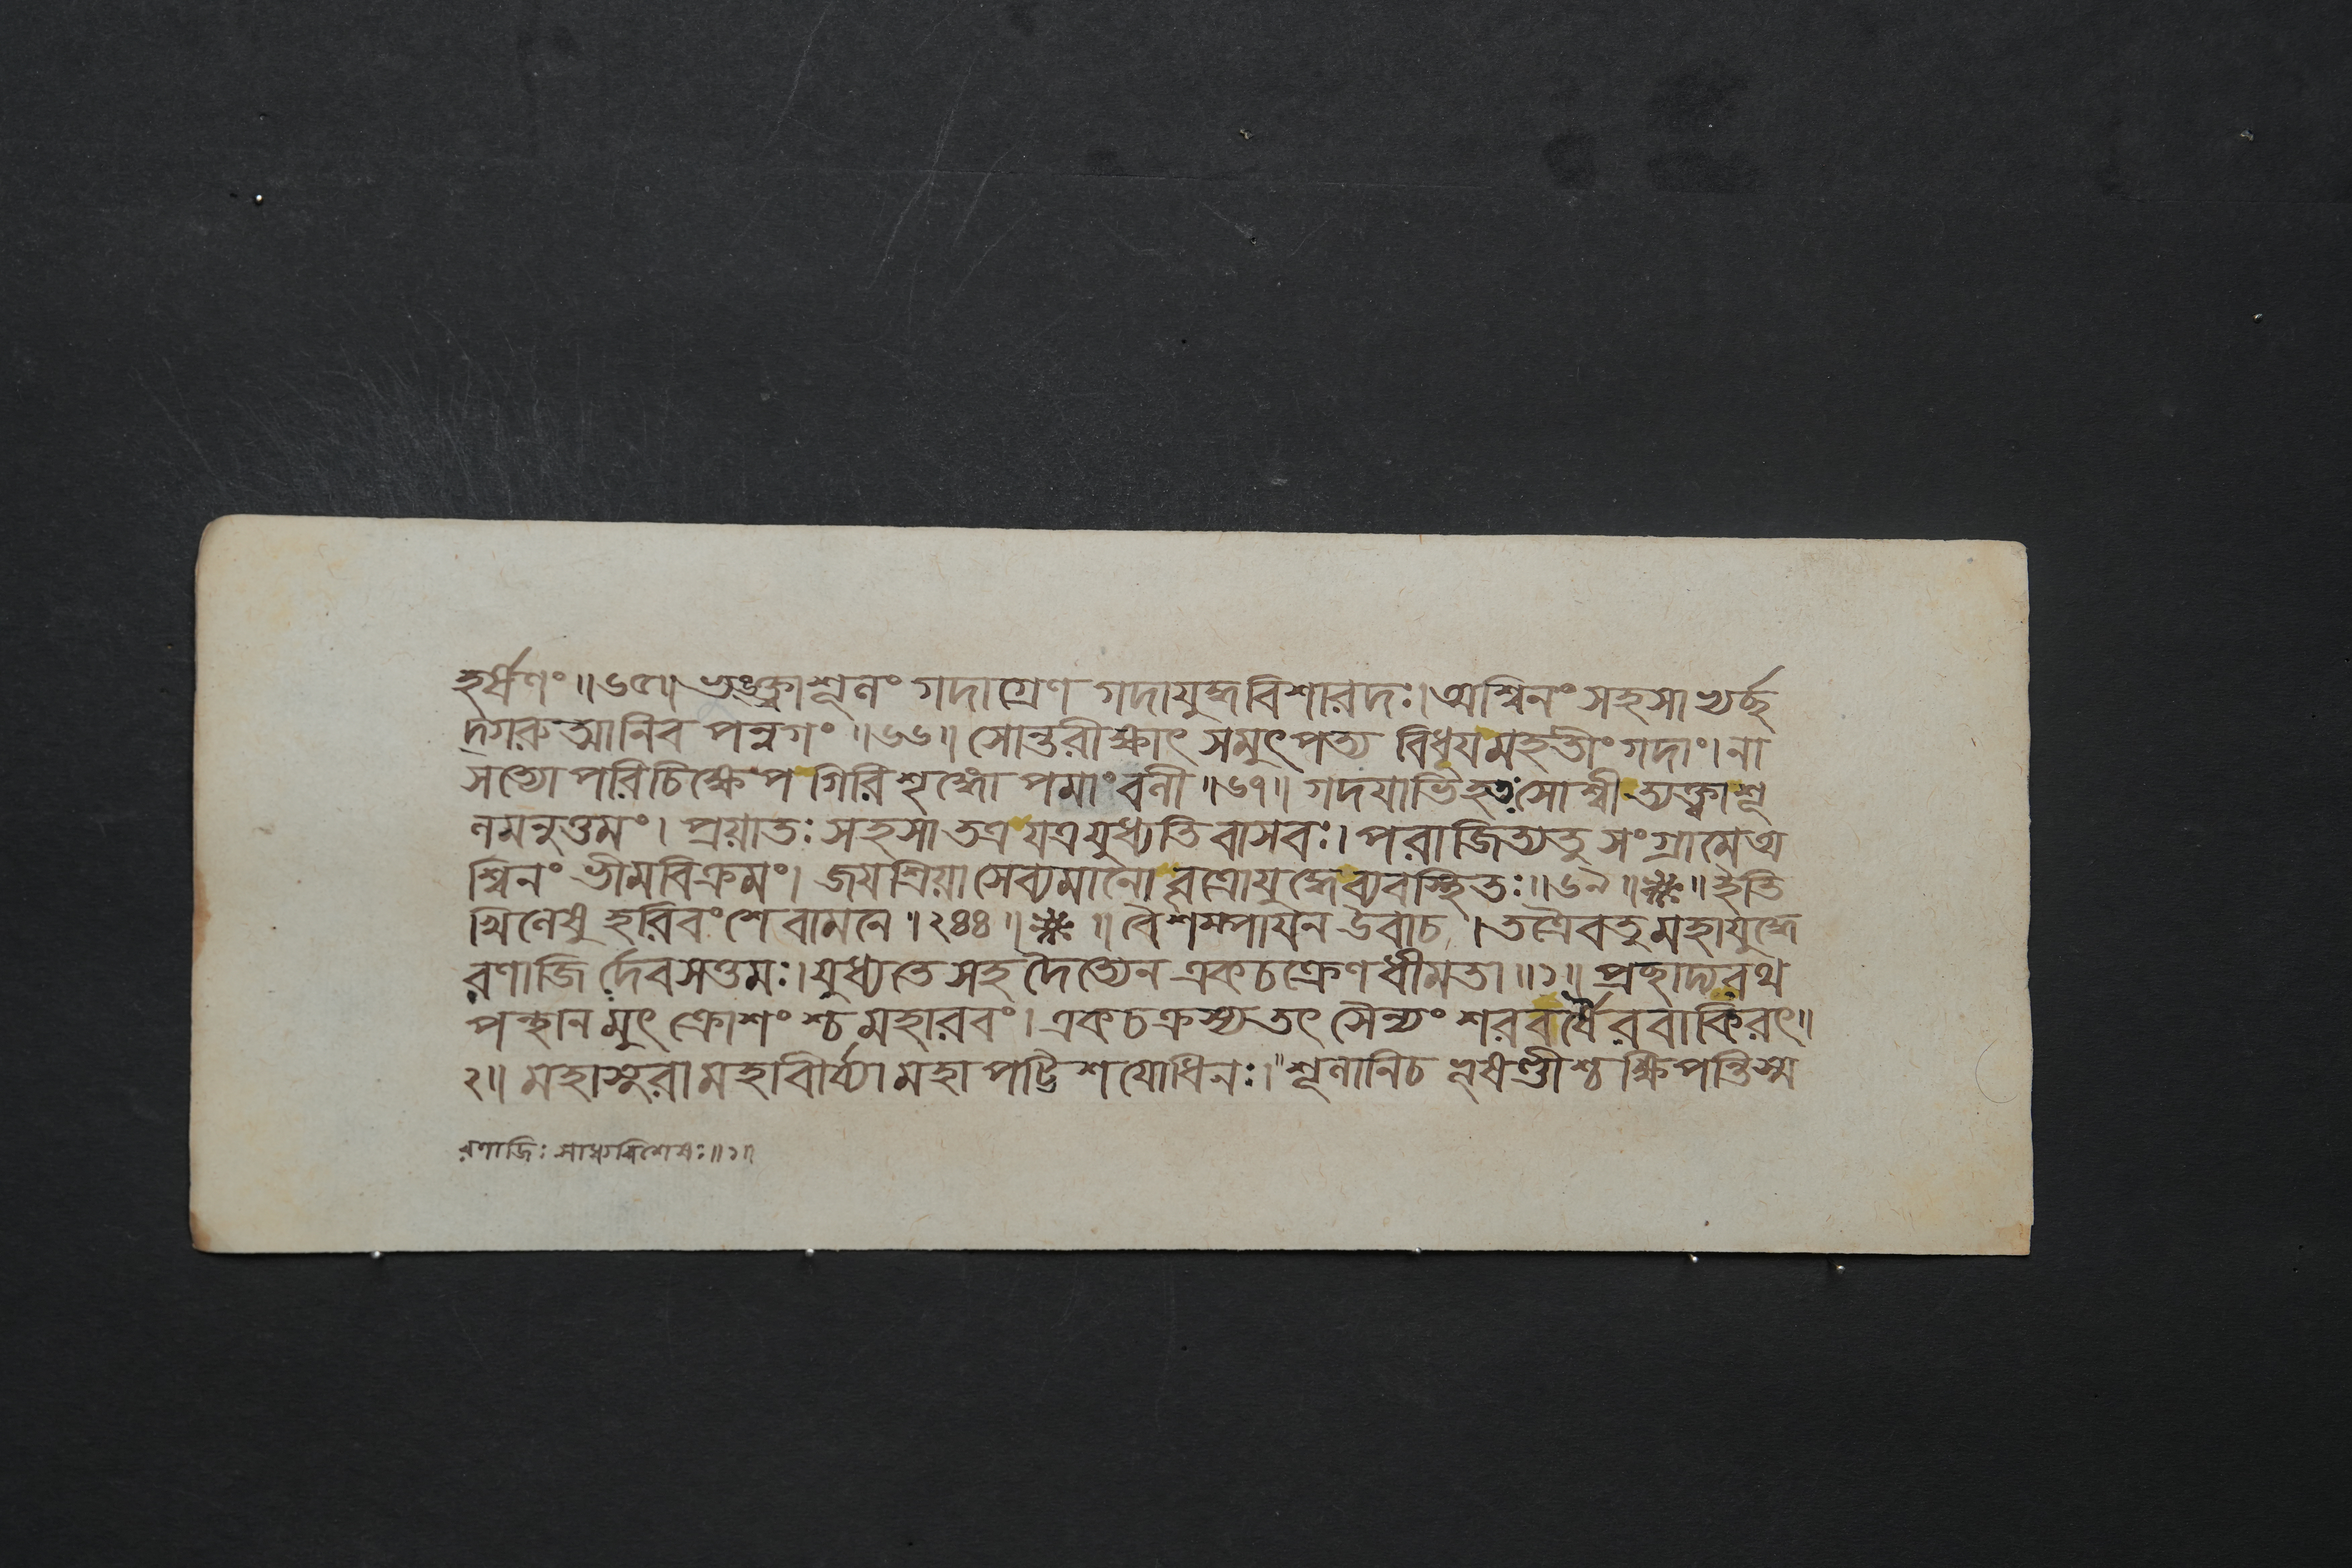 হর্ষণং ॥৬৫॥ ভঙ্ক্ত্বাশূলং গদাগ্রেণ গদাযুদ্ধবিশারদঃ। অশ্বিনং সহসা খর্চ্ছ
দ্গরুত্মানিব পন্নগং ॥৬৬॥ সোন্তরীক্ষাৎ সমুৎপত্য বিধূযমহতীং গদাং। না
সত্যোপরি চিক্ষেপ গিরিশৃঙ্গোপমাং বলী ॥৬৭॥ গদযাভিহতঃ সোশ্বী ত্যক্ত্বাশূ
লমনুত্তমং। প্রয়াতঃ সহসা তত্র যত্র যুধ্যতি বাসবঃ। পরাজিত্যতু সংগ্রামে অ
শ্বিনং ভীমবিক্রমং। জযশ্রিয়া সেব্যমানো বৃত্রোযুদ্ধেব্যবস্থিতঃ ॥৬৯॥ ॥ ইতি
খিলেষু হরিবংশে বামনে ।২৪৪॥ ॥ বৈশম্পাযন উবাচ । তত্রৈবতু মহাযুদ্ধে
রণাজি র্দেবসত্তমঃ। যুধ্যতে সহ দৈত্যেন একচক্রেণ ধীমতা ॥১॥ প্রছাদ্যরথ
পন্থানমুৎ ক্রোশংশ্চ মহারবং। একচক্রস্যতৎ সৈন্যং শরবর্ষৈরবাকিরৎ॥
২॥ মহাসুরা মহাবীর্য্যা মহাপট্টিশযোধিনঃ। শূলানিচ ভুষণ্ডীশ্চ ক্ষিপন্তিস্ম
রণাজিঃ সাধ্যবিশেষঃ॥১॥